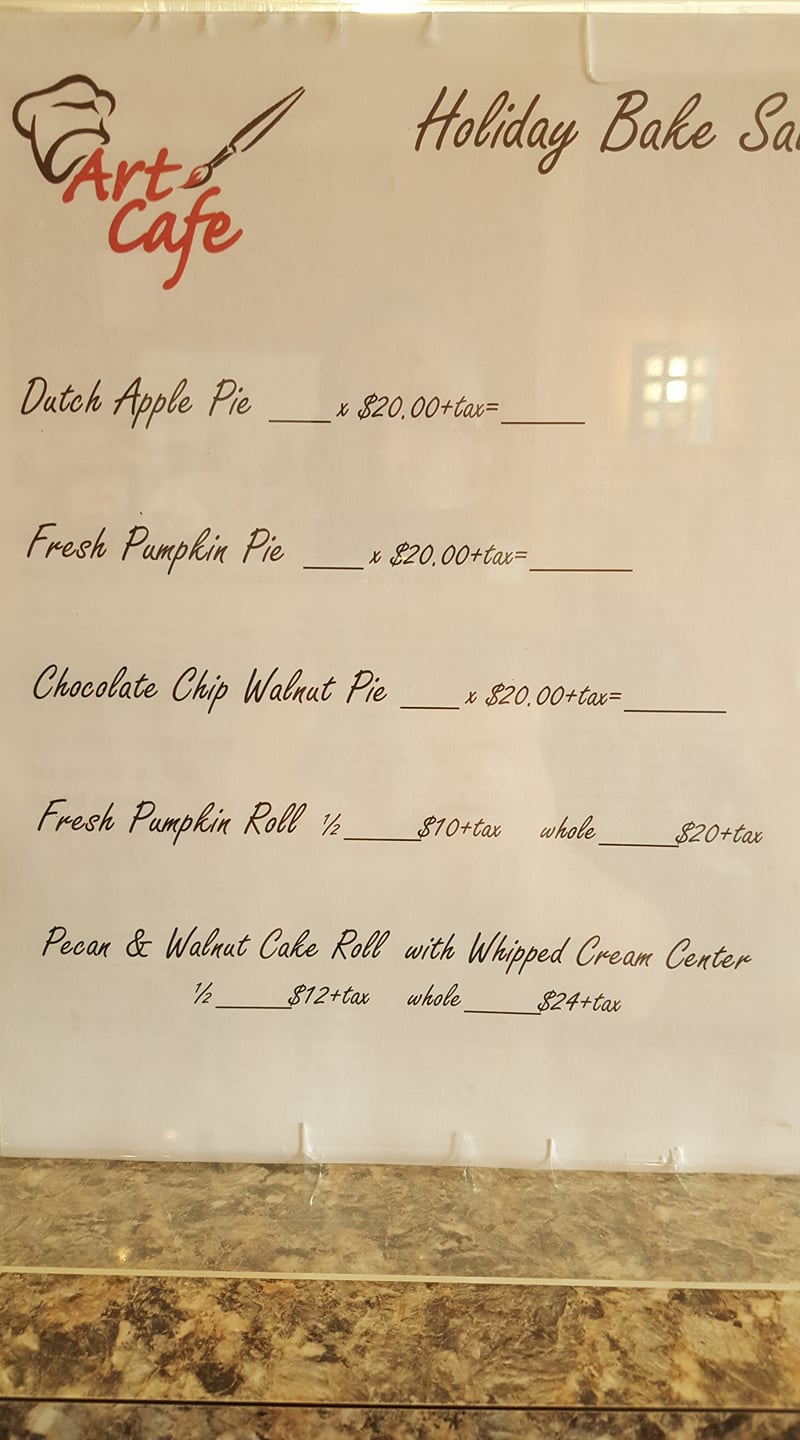 Art
Cafe
Holiday Bake
Dutch Apple Pie ____ x $20.00+tax=____
Fresh Pumpkin Pie ____ x $20.00+tax=____
Chocolate Chip Walnut Pie ____ x $20.00+tax=____
Fresh Pumpkin Roll ½ ____$10+tax whole____$20+tax
Pecan & Walnut Cake Roll with Whipped Cream Center
½ ____$12+tax whole____$24+tax